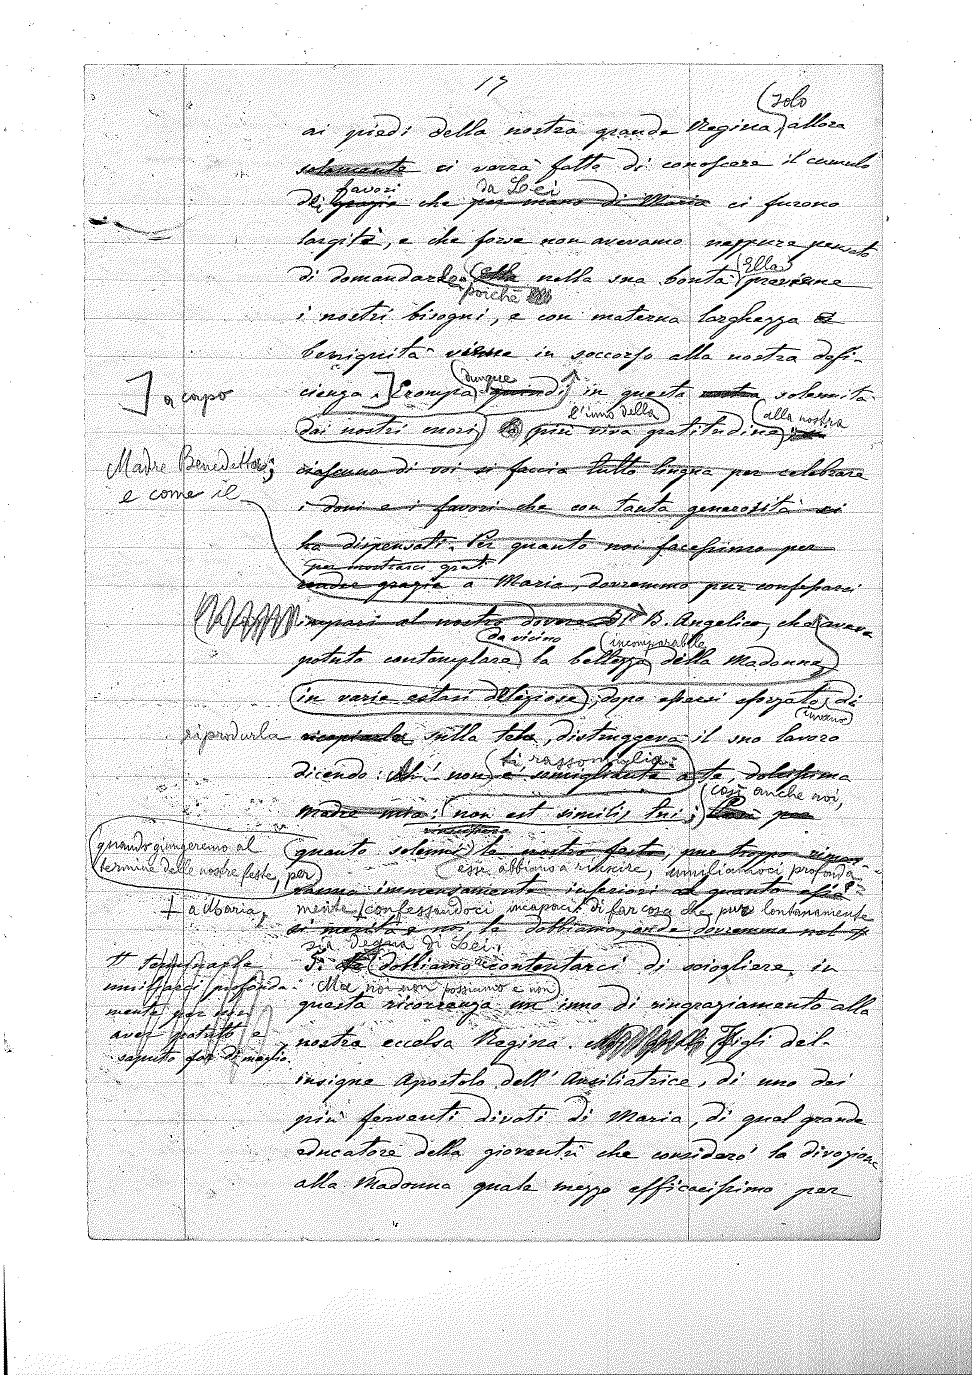 17
(solo
ai piedi della nostra grande Regina, allora
solamente ci verrà fatto di conoscere il cumulo
favori da Lei
dei grazie che per mano di Maria ci furono
largite, e che forse non avevamo neppure pensato
Ella
di domandarle; ella nella sua bontà previene
poichè
i nostri bisogni, e con materna larghezza e
benignità viene in soccorso alla nostra defi-
dunque
cienza. ] Erompa quindi in questa nostra solennità
] a capo
l'inno della alla nostra
dai nostri cuori la più viva gratitudine
Madre Benedetta;
e come il
ciascuno di voi si faccia tutto lingua per celebrare
i doni e i favori che con tanta generosità ci
ha dispensati. Per quanto noi facessimo per
per mostrarci grati
render grazie a Maria, dovremmo pur confessarci
impari al nostro dovere. Il B. Angelico, che aveva
da vicino incomparabile
potuto contemplare la bellezza della Madonna,
in varie estasi deliziose, dopo essersi sforzato di
invano
riprodurla
ricopiarla sulla tela, distruggeva il suo lavoro
ti rassomiglia:
dicendo: Ah! non è somigliante a te, dolcissima
così anche noi,
madre mia: non est similis tui;
quando giungeremo al
termine delle nostre feste, per
quanto solenni le nostre feste, pur troppo riman
essi abbiano a riuscire, umiliamoci profonda-
ranno immensamente inferiori a quanto essa
+ a Maria,
mente + confessandoci incapaci di far cosa che pur lontanamente
si merita e noi le dobbiamo, onde dovremmo nel
sia degna di Lei.
dobbiamo contentarci di sciogliere in
Ma noi non possiamo e non
questa ricorrenza un inno di ringraziamento alla
terminarle
umiliarci profonda-
mente per non
aver potuto e
saputo far di meglio.
nostra eccelsa Regina. Figli del-
insigne Apostolo dell'Ausiliatrice, di uno dei
più ferventi divoti di Maria, di quel grande
educatore della gioventù che considerò la divozione
alla Madonna quale mezzo efficacissimo per